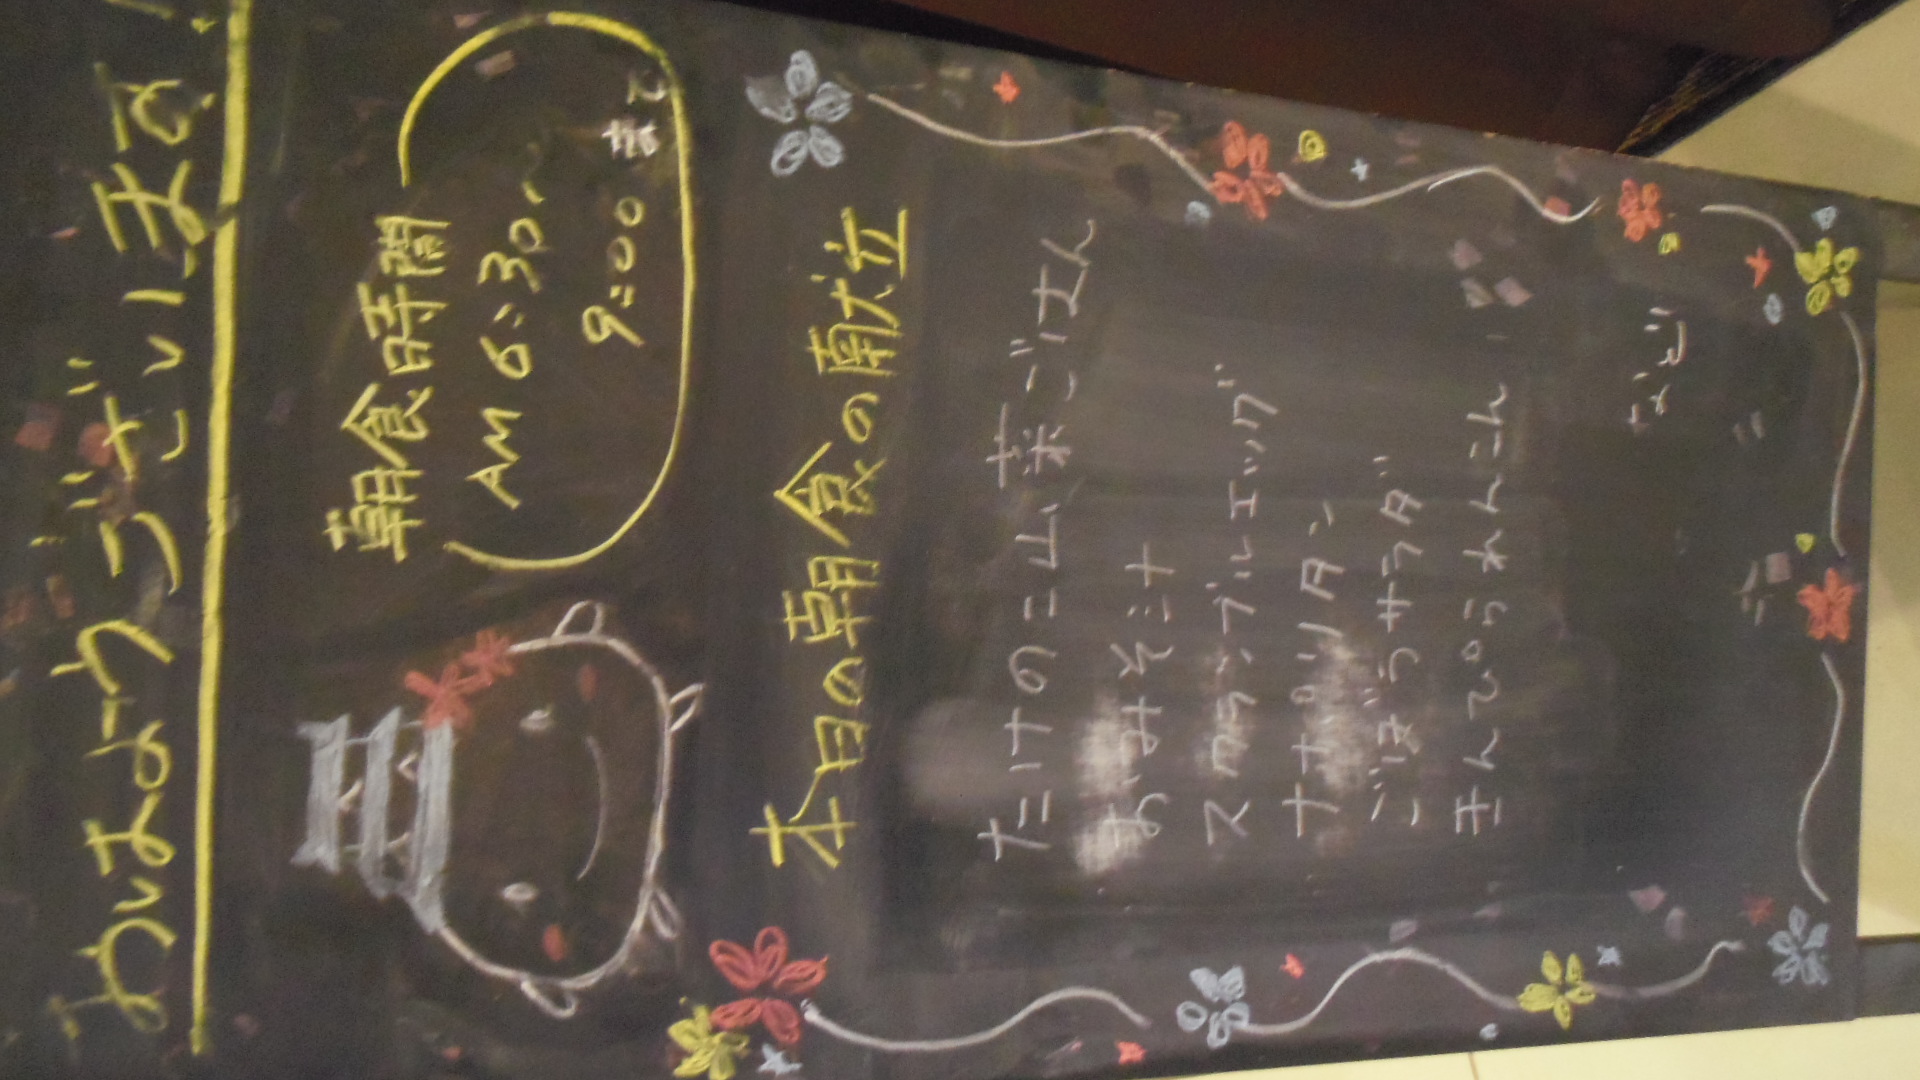 おはようございます!
朝食時間
AM 6:30〜
9:00 まで
本日の朝食の献立
たけのこ山菜ごはん
おみそ汁
スクランブルエッグ
ナポリタン
ごぼうサラダ
きんぴられんこん
など